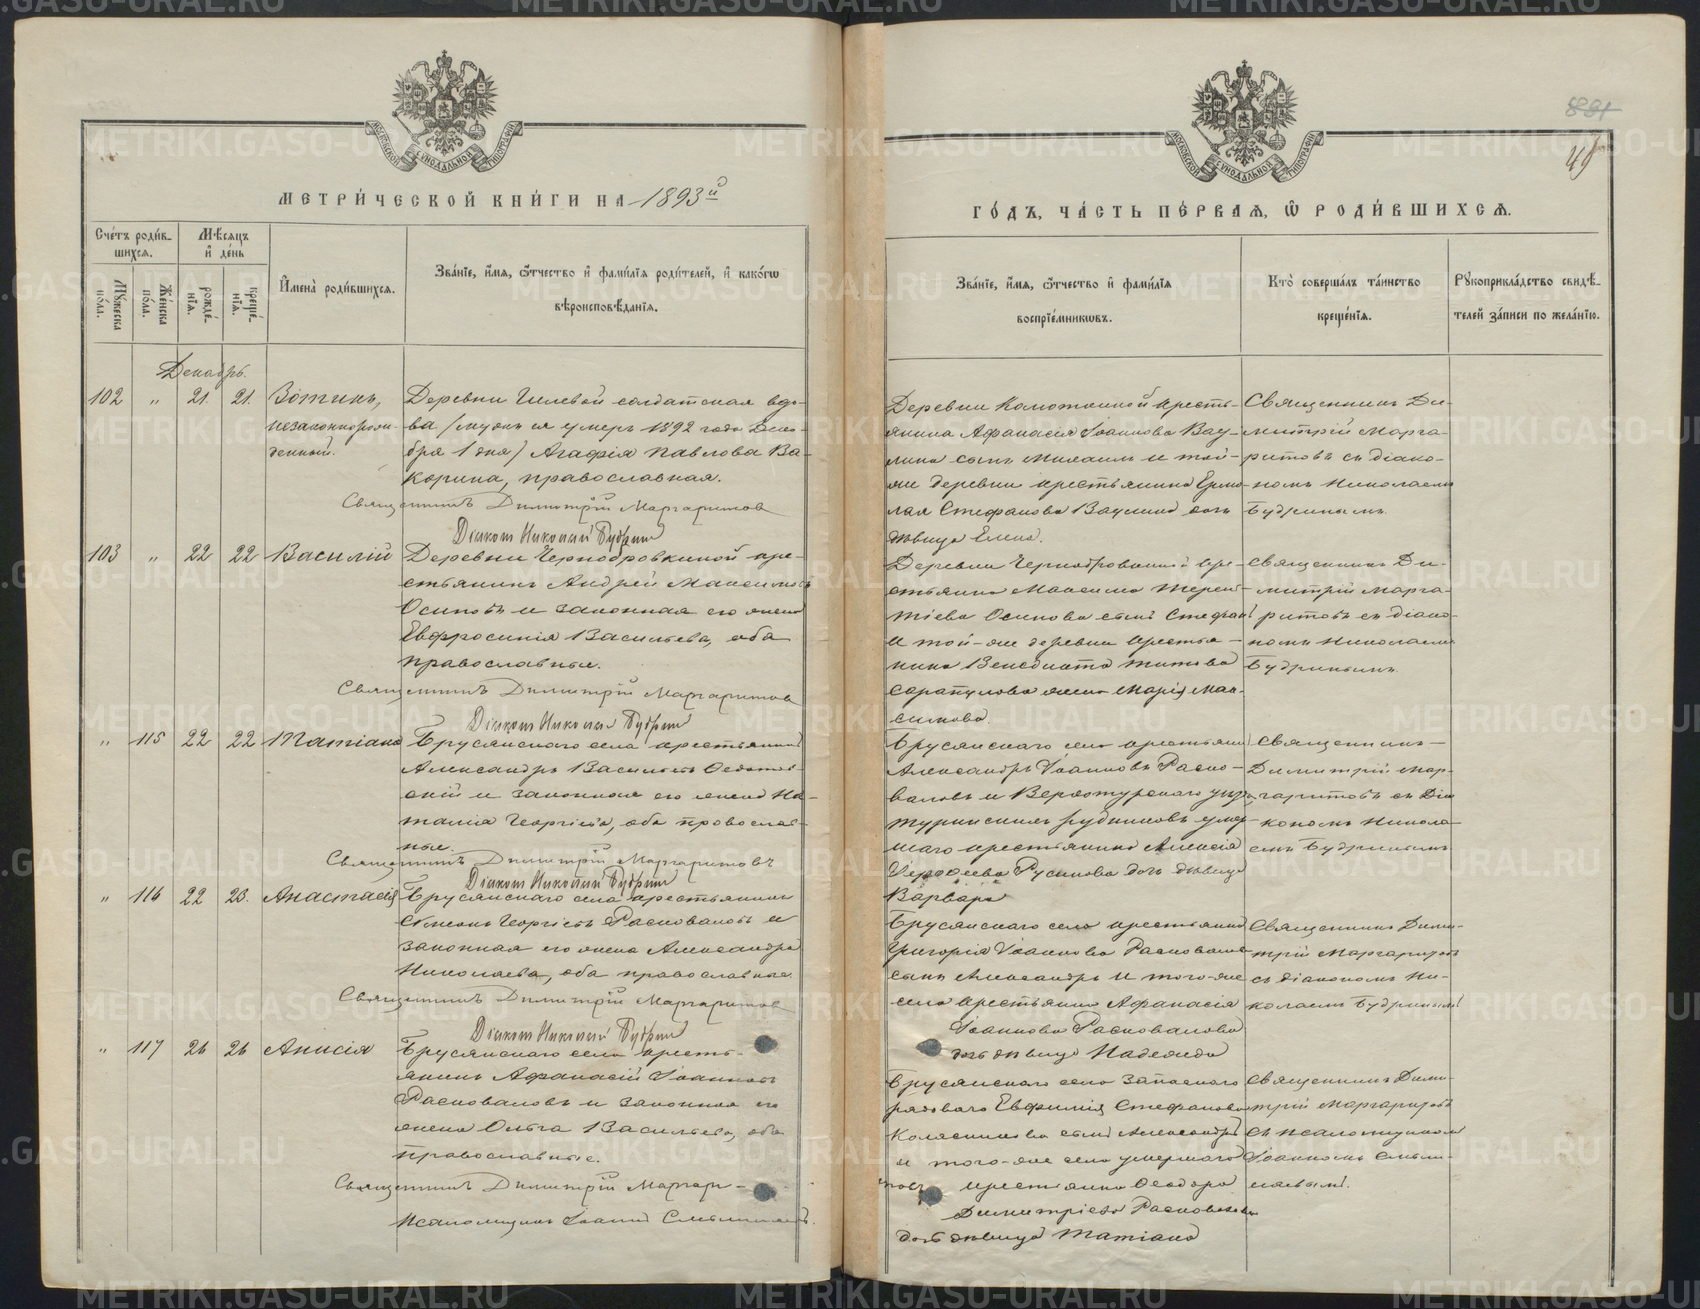 МЕТРИ́ЧЕСКОЙ КНИ́ГИ НА 1893й
ГО́ДЪ, ЧА́СТЬ ПЕ́РВАЯ, Ѿ РОДИ́ВШИХСЯ.
Сче́тъ роди́в-
шихся.
Мꙋ́жеска по́ла.
Же́нска по́ла.
Мѣ́сяцъ
и де́нь
рожде́нїя.
креще́нїя.
И҆мена̀ роди́вшихся.
Зва́нїе, и҆́мя, ѻ҆́тчество и҆ фами́лїя роди́телей, и҆ како́гѡ
вѣроисповѣ́данїя.
Зва́нїе, и҆́мя, ѻ҆́тчество и҆ фами́лїя
воспрїе́мникѡвъ.
Кто̀ соверша́лъ та́инство
креще́нїя.
Рꙋкоприкла́дство свидѣ́-
телей за́писи по жела́нїю.
Декабрь.
102 " 21. 21. Зотикъ,
незаконнорож-
денный.
Деревни Гилевой солдатская вдо-
ва /мужъ ея умеръ 1892 года Дека-
бря 1 дня/ Агафія Павлова Ва-
корина, православная.
Священникъ Димитрій Маргаритовъ
Діаконъ Николай Будринъ
103 " 22 22 Василій
Деревни Чернобровкиной кре-
стьянинъ Андрей Максимовъ
Осиповъ и законная его жена
Евфросинія Васильева, оба
православные.
Священникъ Димитрій Маргаритовъ
Діаконъ Николай Будринъ
" 115 22 22 Татіана
Брусянского села крестьянинъ
Александръ Васильевъ
и законная его жена На-
талія Георгіева, оба православ-
ные.
Священникъ Димитрій Маргаритовъ
Діаконъ Николай Будринъ
" 116 22 23. Анастасія
Брусянскаго села крестьянинъ
Симеонъ Георгіевъ Расковаловъ и
законная его жена Александра
Николаева, оба православные.
Священникъ Димитрій Маргаритовъ
Діаконъ Николай Будринъ
" 117 26 26 Анисія
Брусянскаго села кресть-
янинъ Афанасій Іоанновъ
Расковаловъ и законная его
жена Ольга Васильева, оба
православные.
Священникъ Димитрій Маргари-
товъ
Псаломщикъ Іоаннъ
Деревни Колюткиной кресть-
янина Афанасія Іоаннова Вау-
лина сынъ Михаилъ и той-
же деревни крестьянина Ермо-
лая Стефанова Ваулина дочь
дѣвица Елена.
Священникъ Ди-
митрій Марга-
ритовъ съ діако-
номъ Николаемъ
Будринымъ.
Деревни Чернобровкиной кре-
стьянина Максима Терен-
тіева Осипова сынъ Стефанъ
и той-же деревни крестья-
нина Венедикта Титова
Сарапулова жена Марія Мак-
симова.
Священникъ Ди-
митрій Марга-
ритовъ съ діако-
номъ Николаемъ
Будринымъ.
Брусянскаго села крестьянинъ
Александръ Іоанновъ Раско-
валовъ и Верхотурскаго уѣзда,
Туринскихъ рудниковъ умер-
шаго крестьянина Алексія
Русинова дочь дѣвица
Варвара
Священникъ
Димитрій Мар-
гаритовъ съ Діа-
кономъ Никола-
емъ Будринымъ
Брусянскаго села крестьянина
Григорія Іоаннова Расковалова
сынъ Александръ и того-же
села крестьянина Афанасія
Іоаннова Расковалова
дочь дѣвица Надежда
Священникъ Дими-
трій Маргаритовъ
съ діакономъ Ни-
колаемъ Будринымъ
Брусянскаго села запаснаго
рядоваго Евфимія Стефанова
Колясникова сынъ Александръ
и того-же села умершаго
крестьянина Ѳеодора
Димитріева Расковалова
дочь дѣвица Татіана
Священникъ Дими-
трій Маргаритовъ
съ псаломщикомъ
Іоанномъ
METRIKI.GASO-URAL.RU